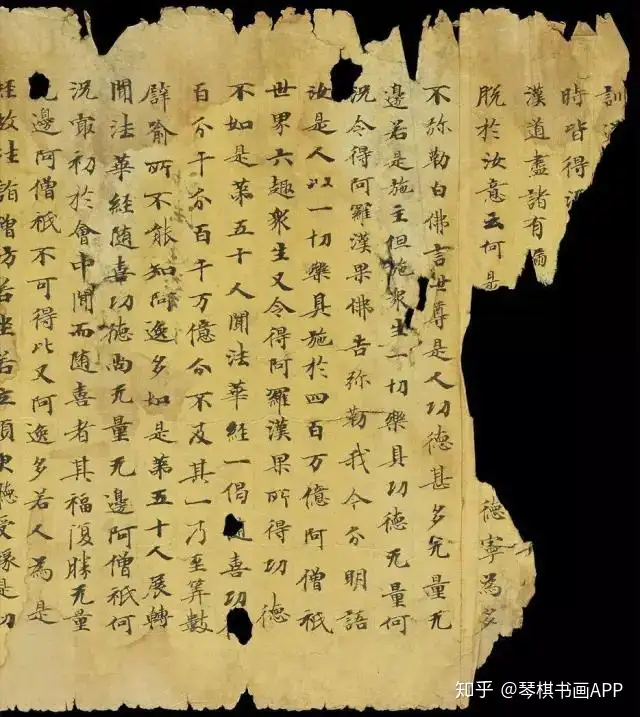 訓
時皆得
漢道盡諸有漏
脫於汝意云何是 德寧為多
不弥勒白佛言世尊是人功德甚多无量无
邊若是施主但施衆生一切樂具功德无量何
況令得阿羅漢果佛告弥勒我今分明語
汝是人以一切樂具施於四百万億阿僧祇
世界六趣衆生又令得阿羅漢果所得功德
不如是第五十人聞法華經一偈隨喜功
百分千分百千万億分不及其一乃至筭數
譬喻所不能知阿逸多如是第五十人展轉
聞法華經隨喜功德尚无量无邊阿僧祇何
況冣初於會中聞而隨喜者其福復勝无量
邊阿僧祇不可得比又阿逸多若人為是
經故往詣僧坊若坐若立須臾聽受緣是功
知乎 @琴棋书画APP